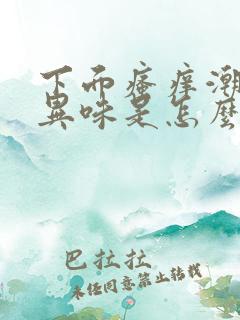 下而瘙痒潮
異味是怎麽
巴拉拉
未经同意禁止转载